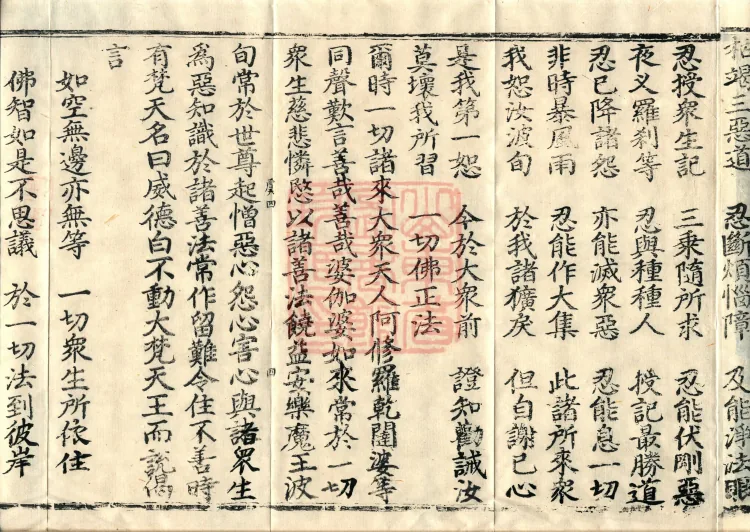 忍斷煩惱障 及能淨法眼
忍授衆生記 三乘隨所求 忍能伏剛惡
夜叉羅刹等 忍與種種人 授記最勝道
忍已降諸怨 亦能滅衆惡 忍能息一切
非時暴風雨 忍能作大集 此諸所來衆
我恕汝波旬 於我諸獷戾 但自謝己心
是我第一恕 今於大衆前 證知勸誡汝
莫壞我所習 一切佛正法
爾時一切諸來大衆天人阿修羅乾闥婆等
同聲歎言善哉善哉婆伽婆如來常於一切
衆生慈悲憐愍以諸善法饒益安樂魔王波
虞四 四
旬常於世尊起憎惡心怨心害心與諸衆生
爲惡知識於諸善法常作留難令住不善時
有梵天名曰威德白不動大梵天王而說偈
言
如空無邊亦無等 一切衆生所依住
佛智如是不思議 於一切法到彼岸